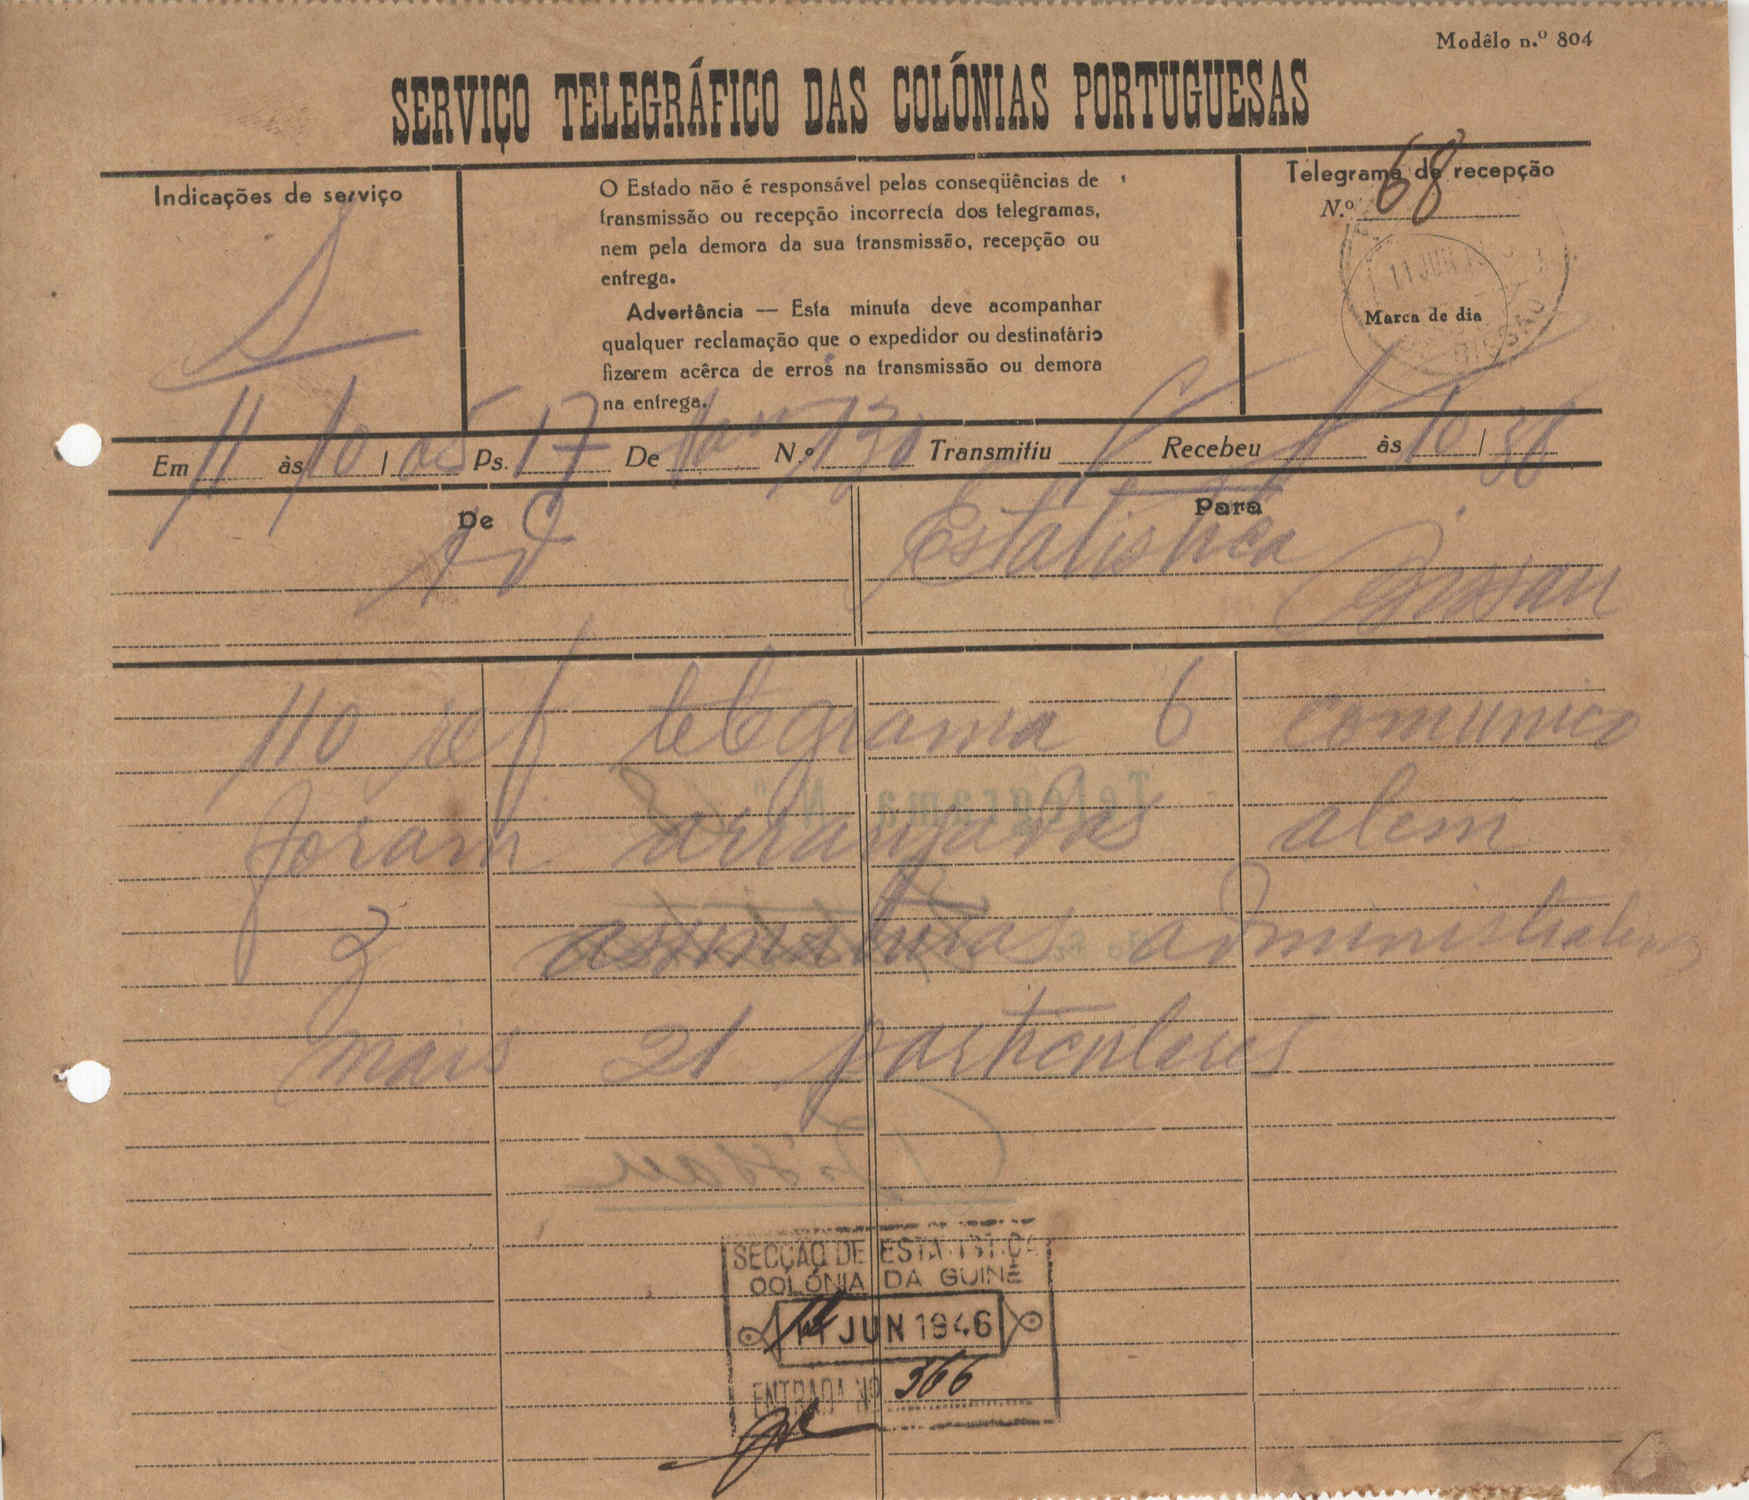 Modêlo n.º 804
SERVIÇO TELEGRÁFICO DAS COLÓNIAS PORTUGUESAS
Indicações de serviço
S
O Estado não é responsável pelas conseqüências de
transmissão ou recepção incorrecta dos telegramas,
nem pela demora da sua transmissão, recepção ou
entrega.
Advertência — Esta minuta deve acompanhar
qualquer reclamação que o expedidor ou destinatário
fizerem acêrca de erros na transmissão ou demora
na entrega.
Telegrama de recepção
N.º 68
11 JUN
Marca de dia
BISSAU
Em 11 às 10 / 05 Ps. 17 De N.º 130 Transmitiu Recebeu às 10 / 36
De
Para
Estatistica
Bissau
110 ref telegrama 6 comunico
foram arranjadas alem
3 assinaturas administrativas
mais 21 particulares
Telegrama N.º 68
Bissau
SECÇÃO DE ESTATISTICA
COLÓNIA DA GUINÉ
11 JUN 1946
ENTRADA Nº 366